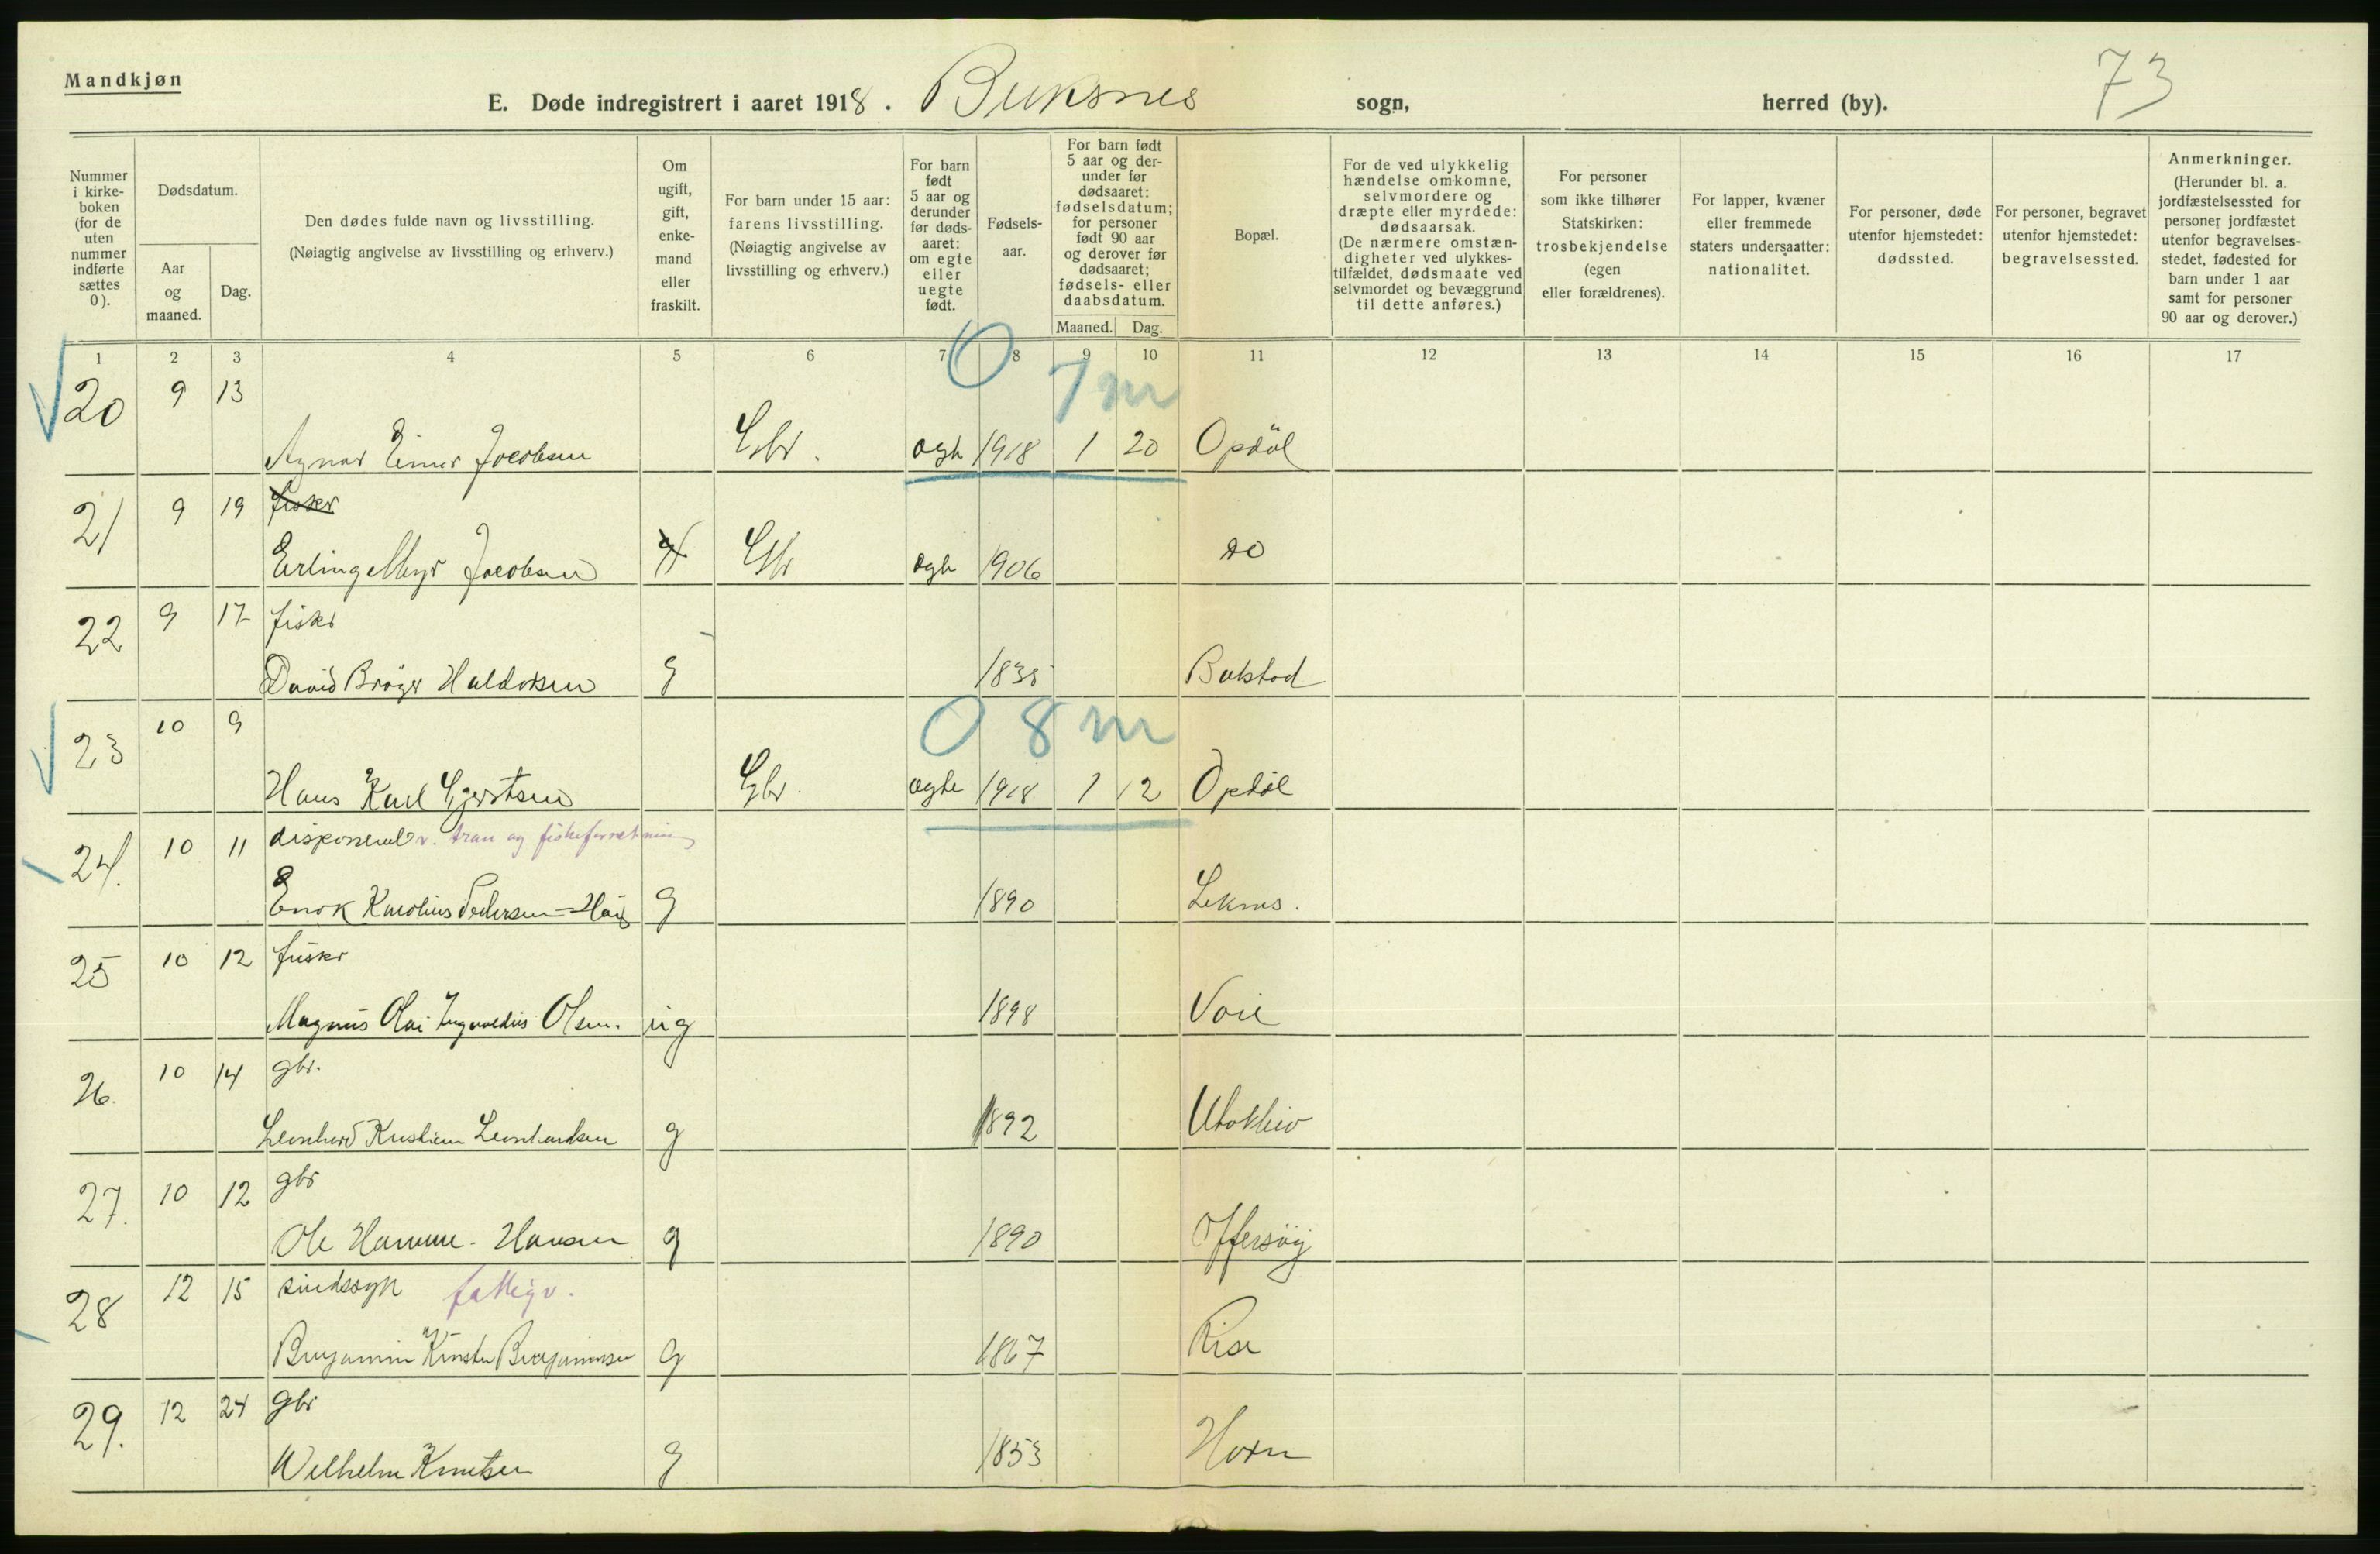 Mandkjøn
E. Døde indregistrert i aaret 1918. Buksnes sogn, herred (by). 73
Nummer i kirke-boken (for de uten nummer indførte sættes 0).
Dødsdatum.
Aar og maaned.
Dag.
Den dødes fulde navn og livsstilling.
(Nøiagtig angivelse av livsstilling og erhverv.)
Om ugift, gift, enke-mand eller fraskilt.
For barn under 15 aar: farens livsstilling. (Nøiagtig angivelse av livsstilling og erhverv.)
For barn født 5 aar og derunder før døds-aaret: om egte eller uegte født.
Fødsels-aar.
For barn født 5 aar og der-under før dødsaaret: fødselsdatum; for personer født 90 aar og derover før dødsaaret; fødsels- eller daabsdatum.
Maaned. Dag.
Bopæl.
For de ved ulykkelig hændelse omkomne, selvmordere og dræpte eller myrdede: dødsaarsak. (De nærmere omstæn-digheter ved ulykkes-tilfældet, dødsmaate ved selvmordet og bevæggrund til dette anføres.)
For personer som ikke tilhører Statskirken: trosbekjendelse (egen eller forældrenes).
For lapper, kvæner eller fremmede staters undersaatter: nationalitet.
For personer, døde utenfor hjemstedet: dødssted.
For personer, begravet utenfor hjemstedet: begravelsessted.
Anmerkninger. (Herunder bl. a. jordfæstelsessted for personer jordfæstet utenfor begravelses-stedet, fødested for barn under 1 aar samt for personer 90 aar og derover.)
1 2 3 4 5 6 7 8 9 10 11 12 13 14 15 16 17
0 7 m
20 9 13
Agnar Einar Jacobsen Gbr. ægte 1918 1 20 Opdøl
21 9 19 fisker
Erling Jacobsen Gbr ægte 1906 do
22 9 17 fisker
David Brøger Haldorsen g 1835 Balstad
0 8 m
23 10 9
Hans Karl Gjertsen Gbr. ægte 1918 1 12 Opdøl
24. 10 11 disponent v. tran og fiskeforretning
Enok Karolius Pedersen g 1890 Leknes.
25 10 12 fisker
Magnus Olai Ingvaldius Olsen. ug 1898 Voie
26. 10 14 gbr.
Leonhard Kristian Leonhardsen g 1892 Utakleiv
27. 10 12 gbr
Ole Hansen g 1890 Offersøy
28 12 15 sindssyk fattigv.
Benjamin Benjaminsen g 1867 Rise
29. 12 24 gbr
Wilhelm Knutsen g 1853 Horn